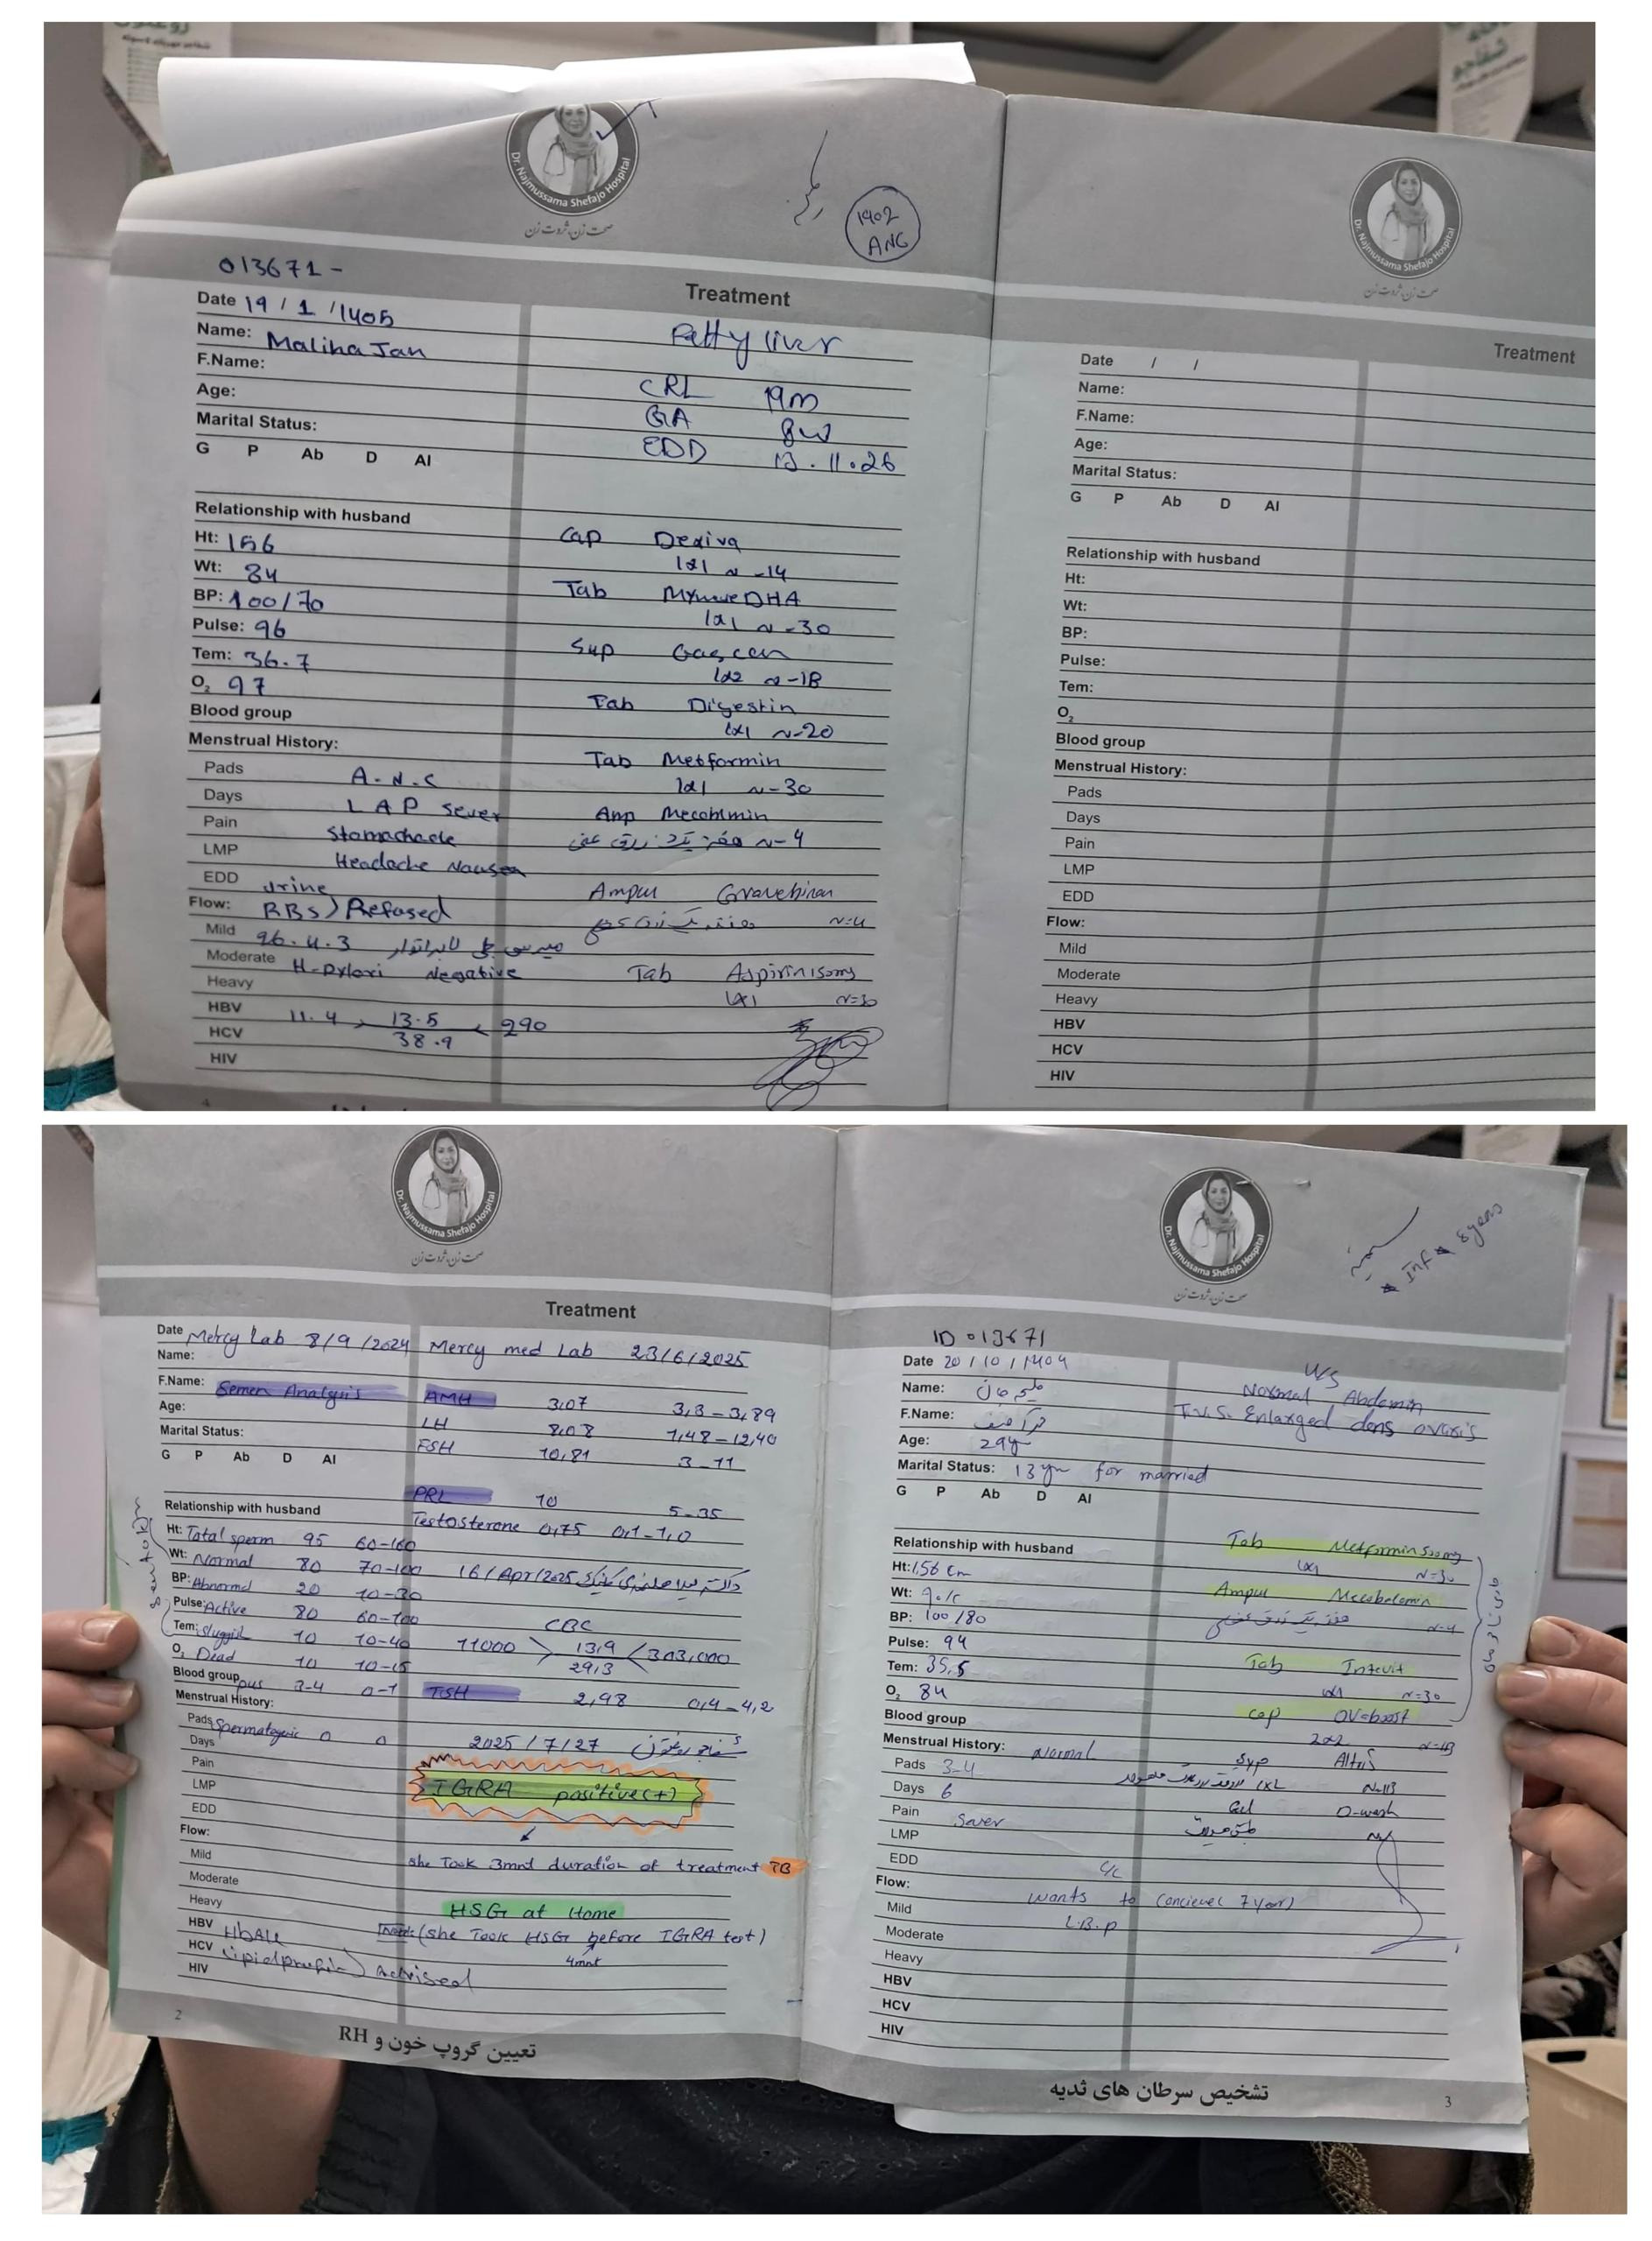 Dr. Najmussama Shefajo Hospital
صحت زن، ثروت زن
1402
ANC
013671 -
Treatment
Date 19 / 1 / 1405
Name: Maliha Jan
F.Name:
Age:
Marital Status:
G P Ab D Al
Relationship with husband
Ht: 156
Wt: 84
BP: 100/70
Pulse: 96
Tem: 36.7
O2 97
Blood group
Menstrual History:
Pads A.N.C
Days LAP sever
Pain Stomachache
LMP Headache Nausea
EDD urine
Flow: RBS) Refused
Mild 96.4.3
Moderate H-pylori Negative
Heavy
HBV 11.4 > 13.5 < 290
HCV 38.9
HIV
Fatty liver
CRL 19m
GA 8w
EDD 13.11.26
Cap Dexiva
1x1 N-14
Tab DHA
1x1 N-30
Sup
1x2 N-18
Tab Digestin
1x1 N-20
Tab Metformin
1x1 N-30
Amp Mecoblmin
N-4
Ampul
N=4
Tab Aspirin
1x1 N=30
Dr. Najmussama Shefajo Hospital
صحت زن، ثروت زن
Treatment
Date / /
Name:
F.Name:
Age:
Marital Status:
G P Ab D Al
Relationship with husband
Ht:
Wt:
BP:
Pulse:
Tem:
O2
Blood group
Menstrual History:
Pads
Days
Pain
LMP
EDD
Flow:
Mild
Moderate
Heavy
HBV
HCV
HIV
Dr. Najmussama Shefajo Hospital
صحت زن، ثروت زن
Treatment
Date Mercy Lab 8/9/2024
Name:
F.Name: Semen Analysis
Age:
Marital Status:
G P Ab D Al
Relationship with husband
Ht: Total sperm 95 60-160
Wt: Normal 80 70-100
BP: Abnormal 20 10-30
Pulse: Active 80 60-100
Tem: Sluggish 10 10-40
O2 Dead 10 10-15
Blood group pus 3-4 0-1
Menstrual History:
Pads Spermatogenic 0 0
Days
Pain
LMP
EDD
Flow:
Mild
Moderate
Heavy
HBV HbA1c
HCV Lipid profile) Advised
HIV
Mercy med Lab 23/6/2025
AMH 3,07 3,3-3,89
LH 8,08 1,48-12,40
FSH 10,81 3-11
PRL 10 5-35
Testosterone 0,75 0,1-1,0
16/Apr/2025
CBC
11000 > 13,9 < 303,000
29,3
TSH 2,98 0,4-4,2
2025/7/27
IGRA positive(+)
she Took 3mnt duration of treatment TB
HSG at Home
(she Took HSG before IGRA test)
4mnt
2
تعیین گروپ خون و RH
Dr. Najmussama Shefajo Hospital
صحت زن، ثروت زن
Inf 8years
ID 013671
Date 20 / 10 / 1404
Name:
F.Name:
Age: 29y
Marital Status: 13 yr for married
G P Ab D Al
Relationship with husband
Ht: 156 cm
Wt:
BP: 100/80
Pulse: 94
Tem: 35,5
O2 84
Blood group
Menstrual History: Normal
Pads 3-4
Days 6
Pain Sever
LMP
EDD C/C
Flow: wants to concieve( 7 year)
Mild L.B.P
Moderate
Heavy
HBV
HCV
HIV
U/S
Normal Abdomin
T.V.S. Enlarged dens ovaris
Tab Metformin 500mg
1x1 N=30
Ampul Mecobalomin
هفته یک زرق عضلی N-4
Tab Intevit
1x1 N=30
Cap OV-boost
2x2
Syp
N=1
Gel D-wash
تشخیص سرطان های ثدیه
3